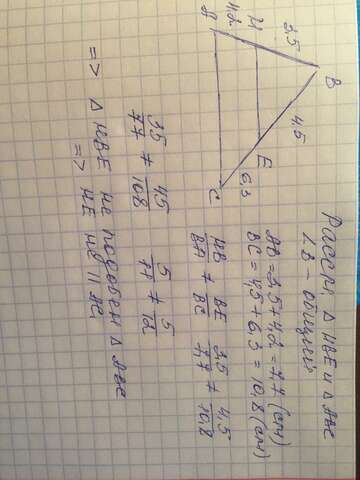 B
3,5
4,5
H
E
4,2
6,3
A
C
Рассм. △ HBE и △ ABC
∠B – общий
AB = 3,5 + 4,2 = 7,7 (см)
BC = 4,5 + 6,3 = 10,8 (см)
HB/BA ≠ BE/BC 3,5/7,7 ≠ 4,5/10,8
35/77 ≠ 45/108 5/11 ≠ 5/12
=> △ HBE не подобен △ ABC
=> HE не || AC